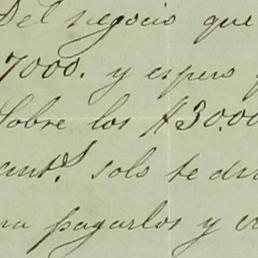 Del negocio que
7000. y espero
Sobre los $30.00
ant.s solo te d
para pagarlos y